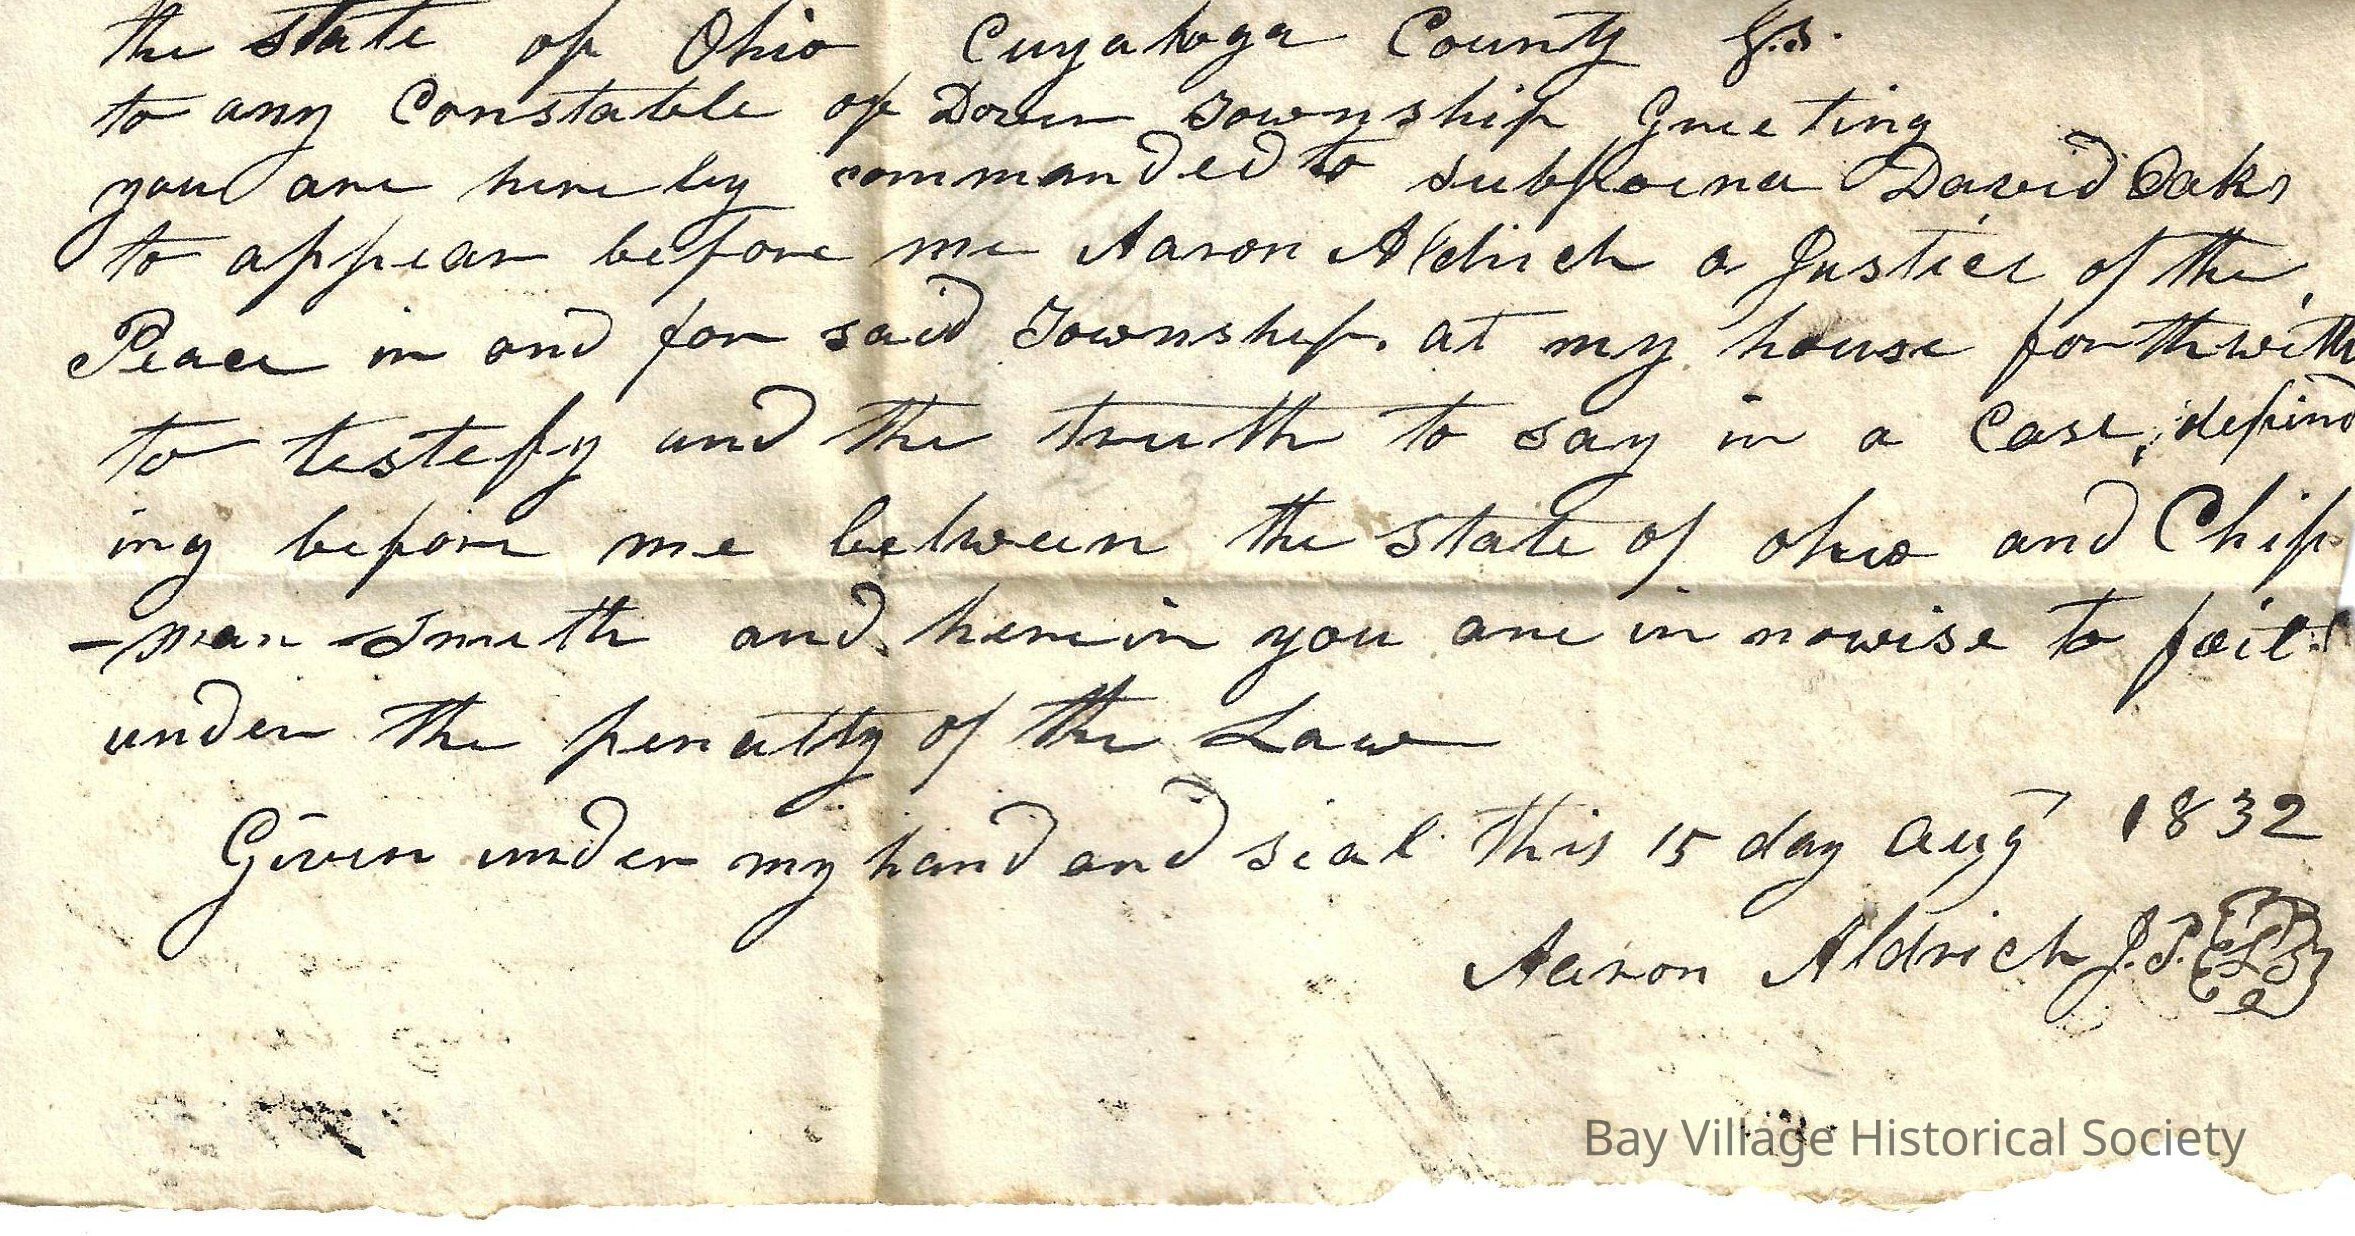 the State of Ohio Cuyahoga County S.S.
to any Constable of Dover Township Greeting
you are here by commanded to subpoena David Oaks
to appear before me Aaron Aldrich a Justice of the
Peace in and for said Township. at my house forthwith
to testefy and the truth to say in a case, depend
ing before me between the State of Ohio and Chip
-man Smith and herein you are in nowise to fail
under the penalty of the Law
Given under my hand and seal this 15 day Aug 1832
Aaron Aldrich J.P. LS
Bay Village Historical Society